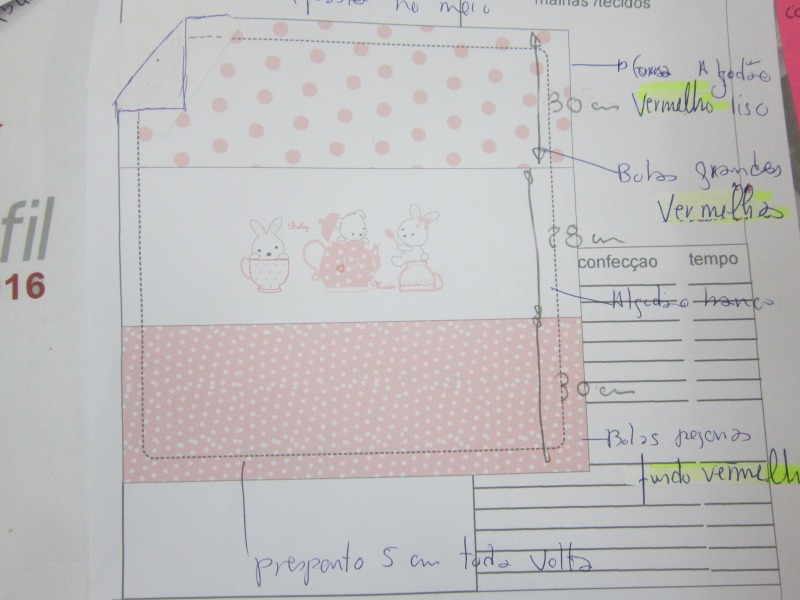 no meio
malhas /tecidos
Algodão
30 cm Vermelho liso
Bolas grandes
Vermelhas
fil
016
Baby
28 cm
confecçao tempo
Algodão branco
30 cm
Bolas peqenas
fundo vermelh
presponto 5 cm toda volta